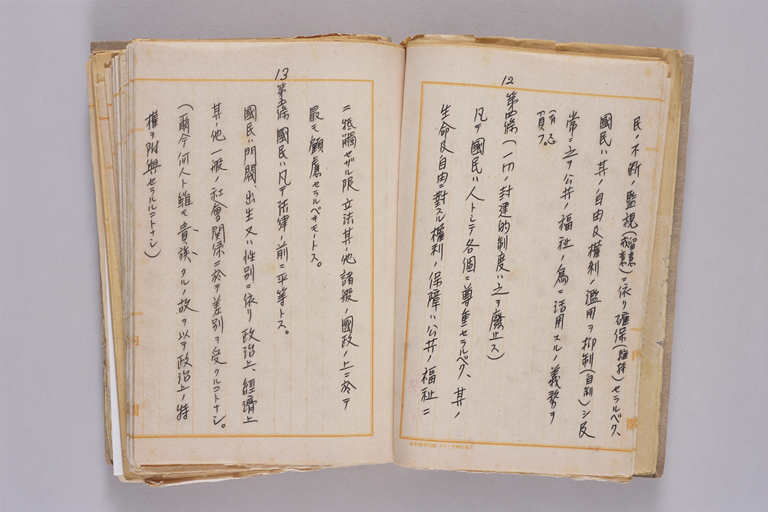 民ノ不断ノ監視(留意)ニ依リ確保(維持)セラルベク、
國民ハ其ノ自由及權利ノ濫用ヲ抑制(自制)シ及
常ニ之ヲ公共ノ福祉ノ爲ニ活用スルノ義務ヲ
負フ
12
第四條(一切ノ封建的制度ハ之ヲ廢止ス)
凡テ國民ハ人トシテ各個ニ尊重セラルベク、其ノ
生命及自由ニ對スル權利ノ保障ハ公共ノ福祉ニ
ニ抵觸セザル限立法其ノ他諸般ノ國政ノ上ニ於テ
最モ顧慮セラルベキモノトス。
13
國民ハ凡テ法律ノ前ニ平等トス。
國民ハ門閥、出生又ハ性別ニ依リ政治上、經濟上
其ノ他一般ノ社會關係ニ於テ差別ヲ受クルコトナシ。
(爾今何人ト雖モ貴族タルノ故ヲ以テ政治上ノ特
權ヲ附與セラルルコトナシ)